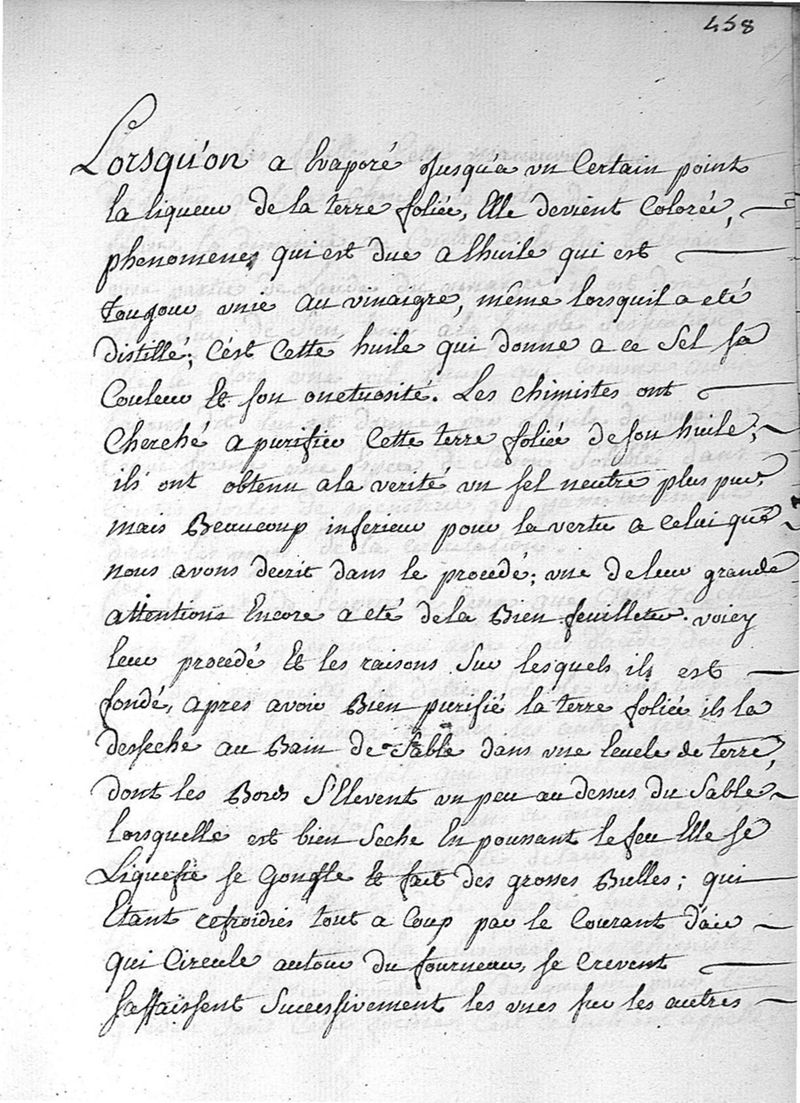 458
Lorsqu'on a Evaporé Jusqu'a un Certain point
la liqueur de la terre foliée, Elle devient Colorée,
phenomenes qui est due a lhuile qui est
toujour unie au vinaigre, même lorsquil a eté
distillé; C'est Cette huile qui donne a ce Sel sa
Couleur Et son onctuosité. Les chimistes ont
Cherché a purifier Cette terre foliée de son huile,
ils ont obtenu a la verité un sel neutre plus pur,
mais Beaucoup inferieur pour la vertu a celui que
nous avons decrit dans le procedé; une de leur grande
attentions Encore a eté de la Bien feuilleter. voicy
leur procedé Et les raisons Sur lesquels ils est
fondé, apres avoir Bien purifié la terre foliée ils la
desseche au Bain de Sable dans une Ecuele de terre,
dont les Bords S'Elevent un peu au dessus du Sable
Lorsquelle est bien Seche En poussant le feu Elle se
Liquefie se Gongle Et fait des grosses Bulles; qui
Etant refroidies tout a Coup par le Courant d'air
qui Circule autour du fourneau, se Crevent
saffaissent Successivement les unes sur les autres